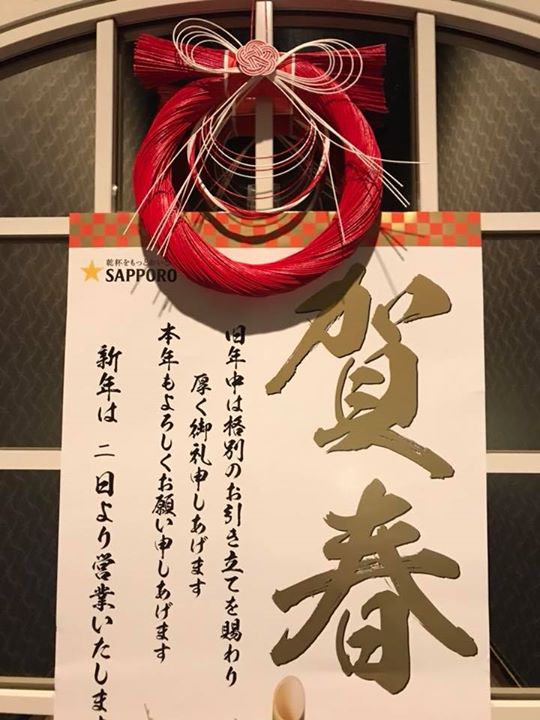 賀春
旧年中は格別のお引き立てを賜わり
厚く御礼申しあげます
本年もよろしくお願い申しあげます
新年は 二 日より営業いたしま
乾杯をもっとおいしく
SAPPORO